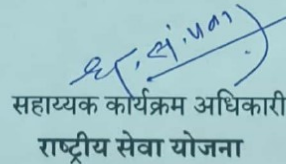 सहाय्यक कार्यक्रम अधिकारी
राष्ट्रीय सेवा योजना